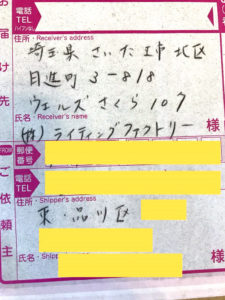 お届け先
電話
TEL
住所・Receiver's address
埼玉県 さいたま市 北区
日進町 3-818
ウェルズさくら107
氏名・Receiver's name
(株)ライティングファクトリー
様
FROM
郵便
番号
ご依頼主
電話
TEL
住所・Shipper's address
東・品川区
氏名・Shipp
様